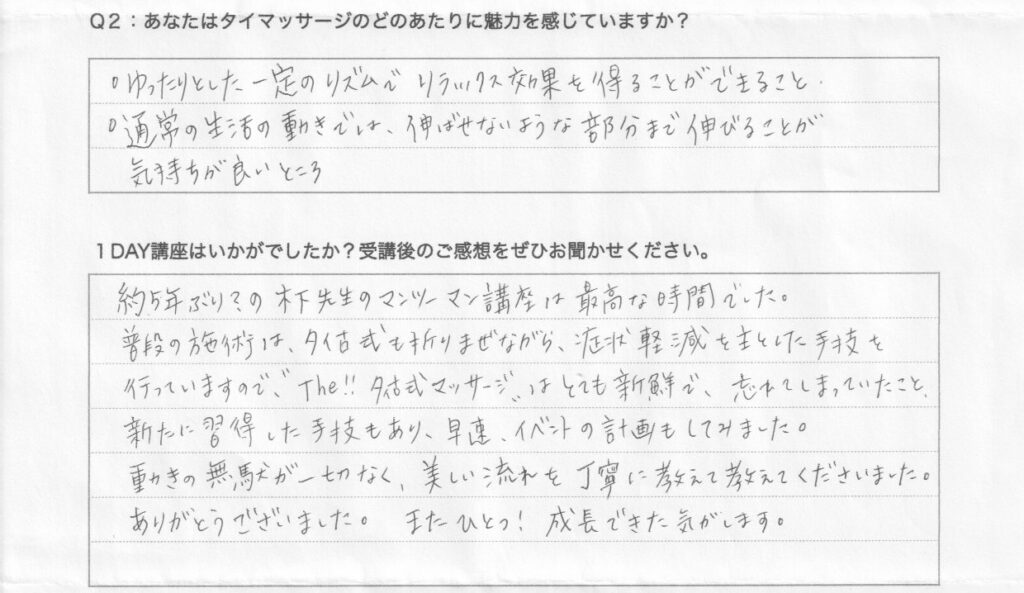 Q2：あなたはタイマッサージのどのあたりに魅力を感じていますか？
○ゆったりとした一定のリズムで リラックス効果を得ることができること.
○通常の生活の動きでは、伸ばせないような部分まで伸びることが
気持ちが良いところ
1DAY講座はいかがでしたか？受講後のご感想をぜひお聞かせください。
約5年ぶり？の木下先生のマンツーマン講座は最高な時間でした。
普段の施術は、タイ古式も折りまぜながら、症状軽減を主とした手技を
行っていますので、"The!! タイ古式マッサージ"はとても新鮮で、忘れてしまっていたこと、
新たに習得した手技もあり、早速、イベントの計画もしてみました。
動きの無駄が一切なく、美しい流れを丁寧に教えて教えてくださいました。
ありがとうございました。 またひとつ！成長できた気がします。